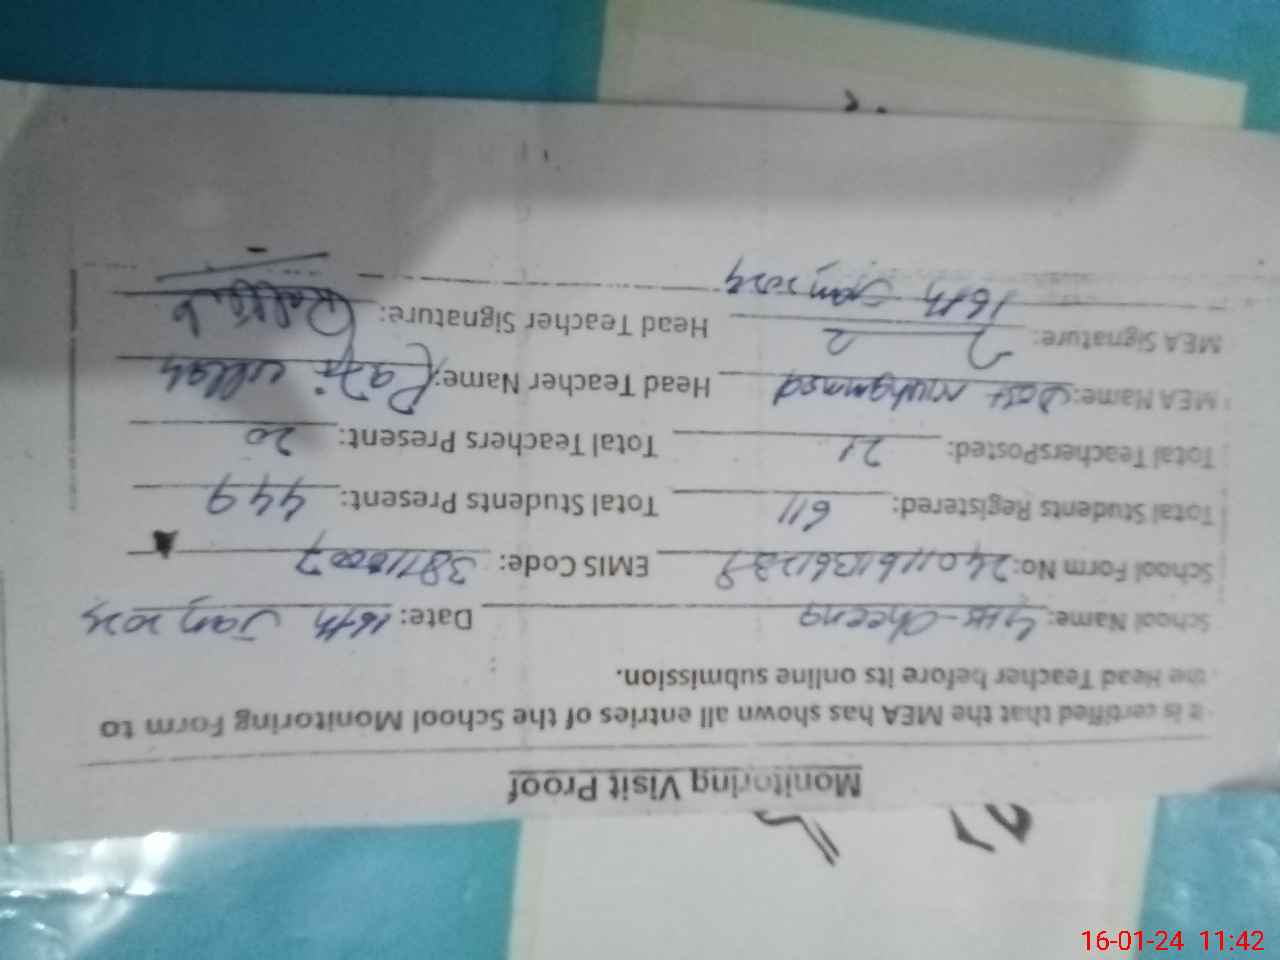 Monitoring Visit Proof
It is certified that the MEA has shown all entries of the School Monitoring Form to
the Head Teacher before its online submission.
School Name: GHS-Cheena Date: 16th Jan 2024
School Form No: 240116136123 EMIS Code: 38711
Total Students Registered: 611 Total Students Present: 449
Total TeachersPosted: 21 Total Teachers Present: 20
MEA Name: Dost Muhammad Head Teacher Name: Rafi ullah
MEA Signature: Head Teacher Signature:
16th Jan 2024
16-01-24 11:42